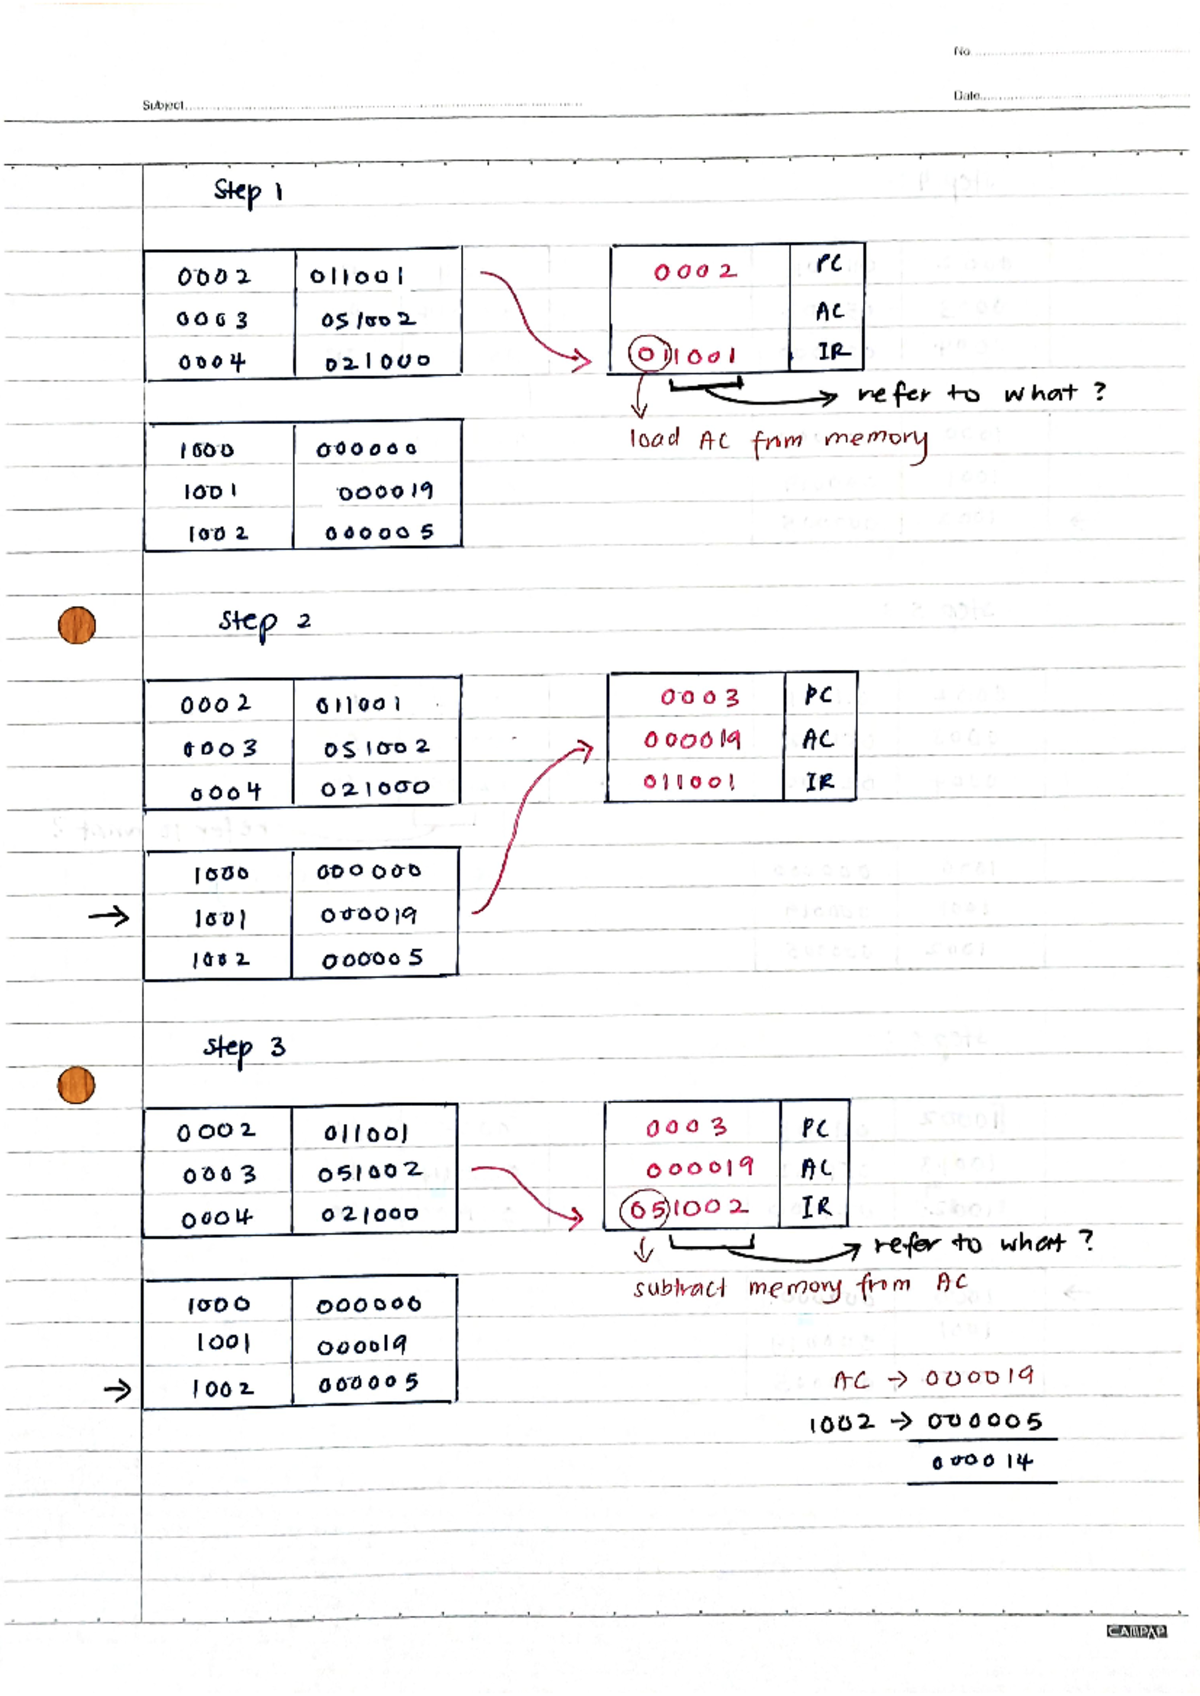 No
Subject
Date
Step 1
0002 011001
0003 051002
0004 021000
0002 PC
AC
011001 IR
refer to what ?
load AC from memory
1000 000000
1001 000019
1002 000005
Step 2
0002 011001
0003 051002
0004 021000
0003 PC
000019 AC
011001 IR
1000 000000
1001 000019
1002 000005
Step 3
0002 011001
0003 051002
0004 021000
0003 PC
000019 AC
051002 IR
refer to what ?
subtract memory from AC
1000 000000
1001 000019
1002 000005
AC → 000019
1002 → 000005
000014
CAMPAP